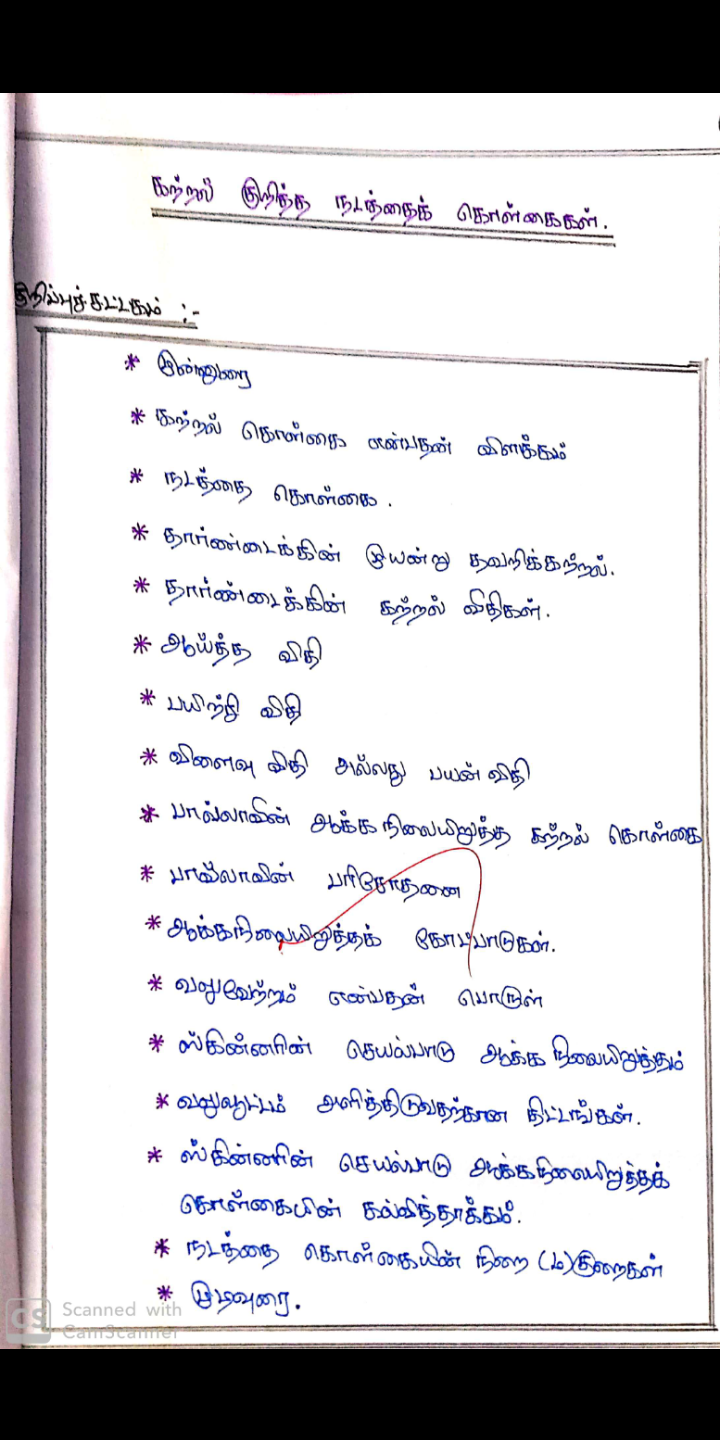 கற்றல் குறித்த நடத்தைக் கொள்கைகள்.
குறிப்புச் சட்டகம் :-
* முன்னுரை
* கற்றல் கொள்கை என்பதன் விளக்கம்
* நடத்தை கொள்கை .
* தார்ண்டைக்கின் முயன்று தவறிக்கற்றல்.
* தார்ண்டைக்கின் கற்றல் விதிகள்.
* ஆய்த்த விதி
* பயிற்சி விதி
* விளைவு விதி அல்லது பயன் விதி
* பாவ்லாவின் ஆக்க நிலையிறுத்த கற்றல் கொள்கை
* பாவ்லாவின் பரிசோதனை
* ஆக்கநிலையிறுத்தக் கோட்பாடுகள்.
* வலுவேற்றம் என்பதன் பொருள்
* ஸ்கின்னரின் செயல்பாடு ஆக்க நிலையிறுத்தம்
* வலுவூட்டம் அளித்திடுவதற்கான திட்டங்கள்.
* ஸ்கின்னரின் செயல்பாடு ஆக்கநிலையிறுத்தக்
கொள்கையின் கல்வித்தாக்கம்.
* நடத்தை கொள்கையின் நிறை (ம்) குறைகள்
* முடிவுரை.
CS Scanned with
CamScanner